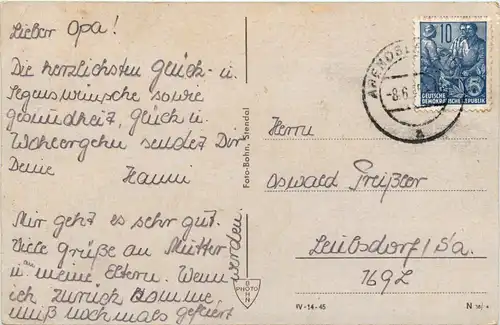 Lieber Opa!
Die herzlichsten Glück- u.
Segenswünsche sowie
gesundheit, Glück u.
Wohlergehn sendet Dir
Deine Hanni
Mir geht es sehr gut.
Viele Grüße an Mutter
u. meine Eltern. Wenn
ich zurück komme,
muß noch mals gefeiert
werden.
Foto-Bohn, Stendal
BOHN
PHOTO
10
DEUTSCHE
DEMOKRATISCHE REPUBLIK
ARENDS
-8.6.
a
Herrn
Oswald Preißler
Leubsdorf/Sa.
169L
IV-14-45
N